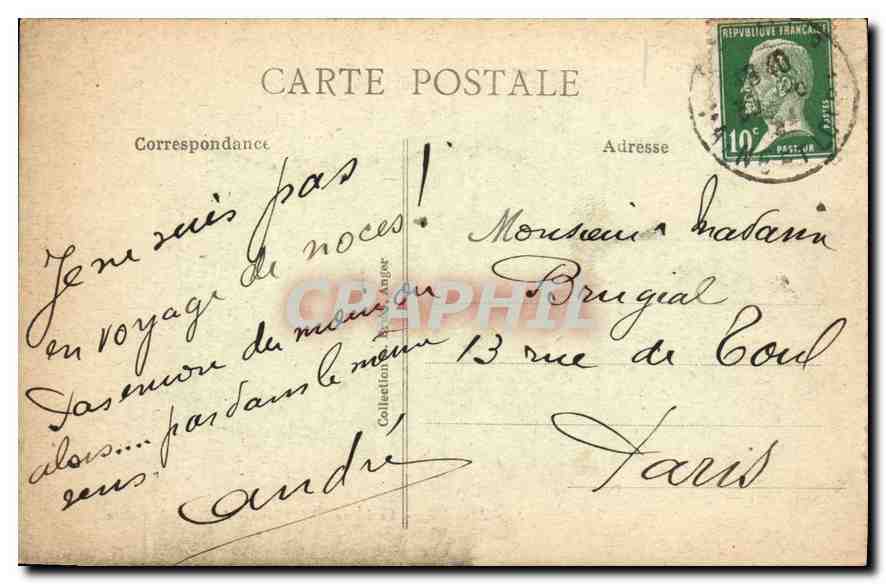 CARTE POSTALE
Correspondance
Adresse
REPVBLIQUE FRANÇAISE
10c
POSTES
PASTEUR
Je ne suis pas
en voyage de noces!
Pas encore du moins ou
alors.... pas dans le même
sens.
André
Collection Anger
Monsieur Madame
Brugial
13 rue de Toul
Paris
CPAPHIL